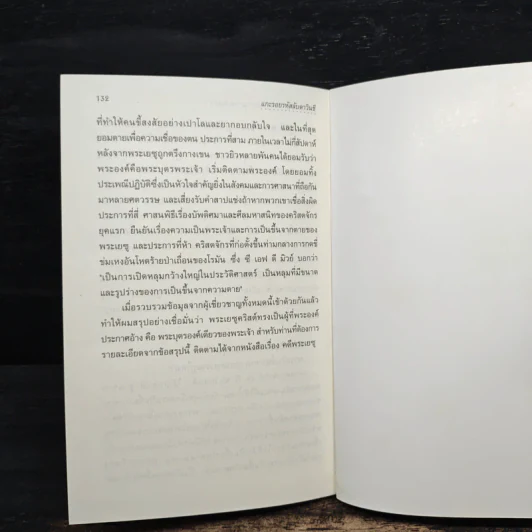 132
แกะรอยรหัสลับดาวินชี
ที่ทำให้คนขี้สงสัยอย่างเปาโลและยากอบกลับใจ และในที่สุด
ยอมตายเพื่อความเชื่อของตน ประการที่สาม ภายในเวลาไม่กี่สัปดาห์
หลังจากพระเยซูถูกตรึงกางเขน ชาวยิวหลายพันคนได้ยอมรับว่า
พระองค์คือพระบุตรพระเจ้า เริ่มติดตามพระองค์ โดยยอมทิ้ง
ประเพณีปฏิบัติซึ่งเป็นหัวใจสำคัญยิ่งในสังคมและการศาสนาที่ถือกัน
มาหลายศตวรรษ และเสี่ยงรับคำสาปแช่งถ้าหากพวกเขาเชื่อสิ่งผิด
ประการที่สี่ ศาสนพิธีเรื่องบัพติศมาและศีลมหาสนิทของคริสตจักร
ยุคแรก ยืนยันเรื่องความเป็นพระเจ้าและการเป็นขึ้นจากตายของ
พระเยซู และประการที่ห้า คริสตจักรที่ก่อตั้งขึ้นท่ามกลางการกดขี่
ข่มเหงอันโหดร้ายป่าเถื่อนของโรมัน ซึ่ง ซี เอฟ ดี มิวย์ บอกว่า
"เป็นการเปิดหลุมกว้างใหญ่ในประวัติศาสตร์ เป็นหลุมที่มีขนาด
และรูปร่างของการเป็นขึ้นจากความตาย"
เมื่อรวบรวมข้อมูลจากผู้เชี่ยวชาญทั้งหมดนี้เข้าด้วยกันแล้ว
ทำให้ผมสรุปอย่างเชื่อมั่นว่า พระเยซูคริสต์ทรงเป็นผู้ที่พระองค์
ประกาศอ้าง คือ พระบุตรองค์เดียวของพระเจ้า สำหรับท่านที่ต้องการ
รายละเอียดจากข้อสรุปนี้ ติดตามได้จากหนังสือเรื่อง คดีพระเยซู